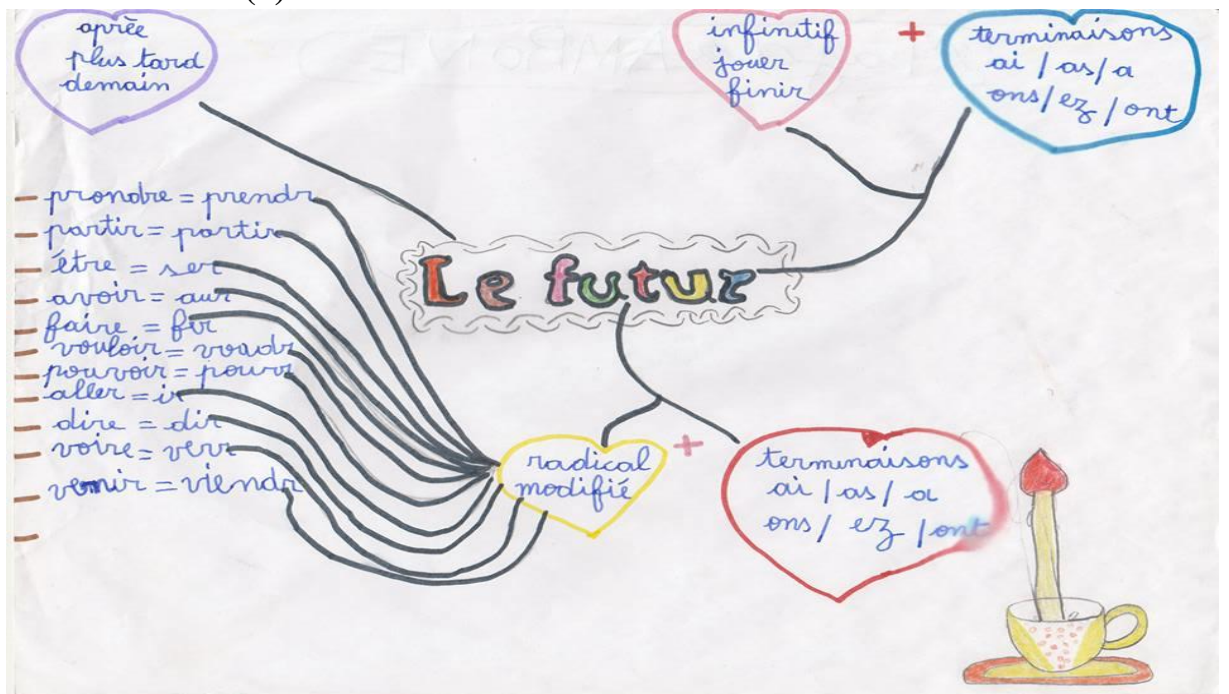 après
plus tard
demain
infinitif
jouer
finir
+
terminaisons
ai / as / a
ons / ez / ont
Le futur
prondre = prendr
partir = partir
être = ser
avoir = aur
faire = fir
vouloir = voudr
pouvoir = pourr
aller = ir
dire = dir
voire = verr
venir = viendr
radical
modifié
+
terminaisons
ai / as / a
ons / ez / ont